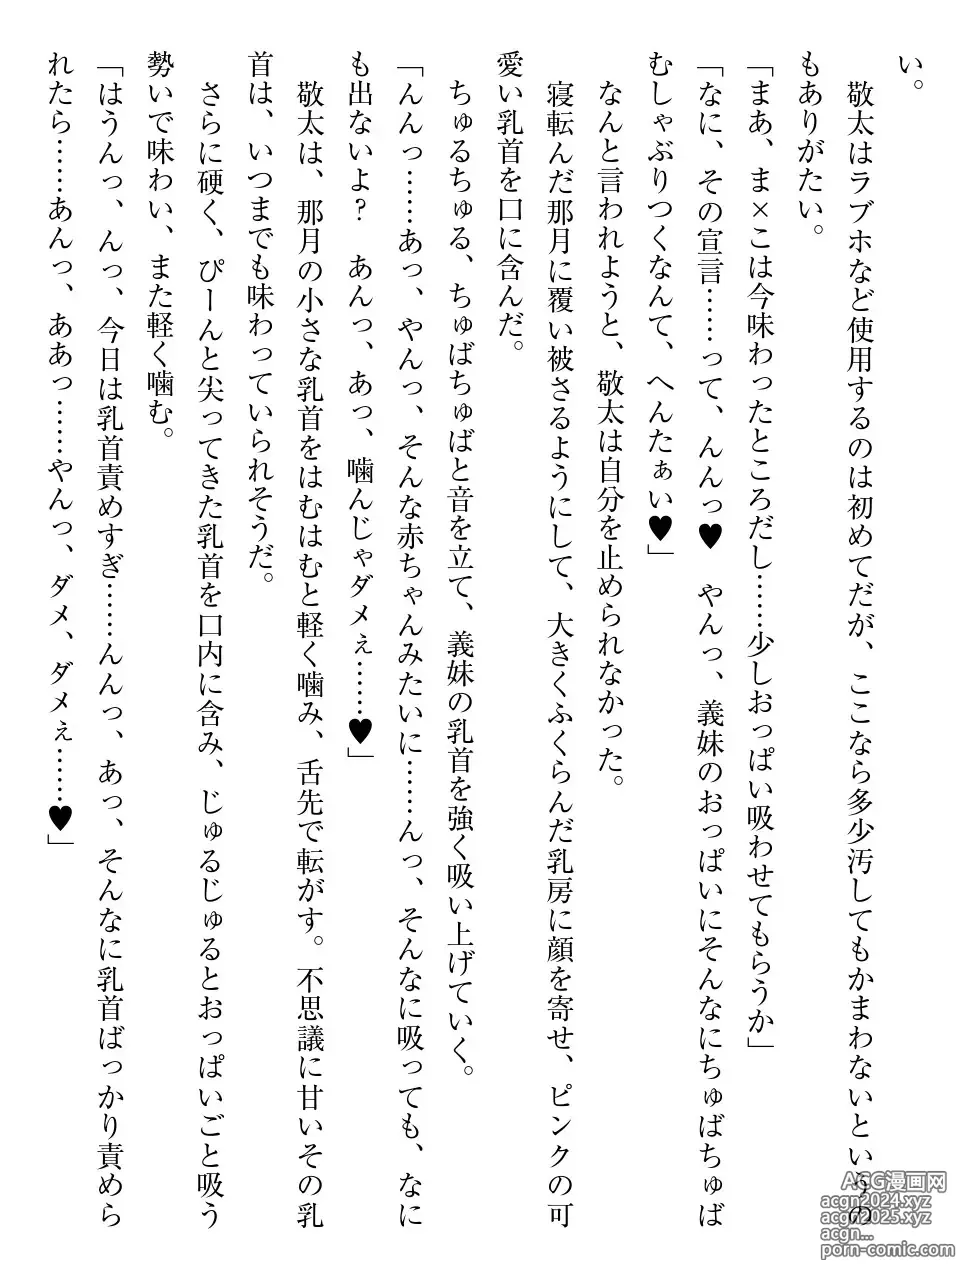 い。
　敬太はラブホなど使用するのは初めてだが、ここなら多少汚してもかまわないというの
もありがたい。
「まあ、ま×こは今味わったところだし……少しおっぱい吸わせてもらうか」
「なに、その宣言……って、んんっ♥　やんっ、義妹のおっぱいにそんなにちゅばちゅば
むしゃぶりつくなんて、へんたぁい♥」
　なんと言われようと、敬太は自分を止められなかった。
　寝転んだ那月に覆い被さるようにして、大きくふくらんだ乳房に顔を寄せ、ピンクの可
愛い乳首を口に含んだ。
　ちゅるちゅる、ちゅばちゅばと音を立て、義妹の乳首を強く吸い上げていく。
「んんっ……あっ、やんっ、そんな赤ちゃんみたいに……んっ、そんなに吸っても、なに
も出ないよ？　あんっ、あっ、噛んじゃダメぇ……♥」
　敬太は、那月の小さな乳首をはむはむと軽く噛み、舌先で転がす。不思議に甘いその乳
首は、いつまでも味わっていられそうだ。
　さらに硬く、ぴーんと尖ってきた乳首を口内に含み、じゅるじゅるとおっぱいごと吸う
勢いで味わい、また軽く噛む。
「はうんっ、んっ、今日は乳首責めすぎ……んんっ、あっ、そんなに乳首ばっかり責めら
れたら……あんっ、ああっ……やんっ、ダメ、ダメぇ……♥」
ACG漫画网
acgn2024.xyz
acgn2025.xyz
acgn...
porn-comic.com